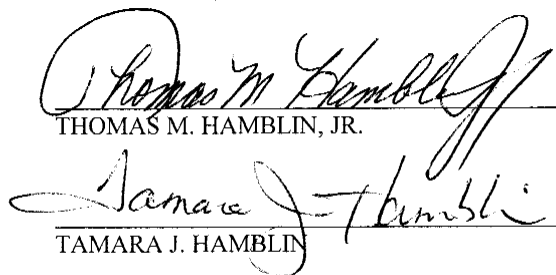 Thomas M Hamblin Jr
THOMAS M. HAMBLIN, JR.
Tamara J Hamblin
TAMARA J. HAMBLIN